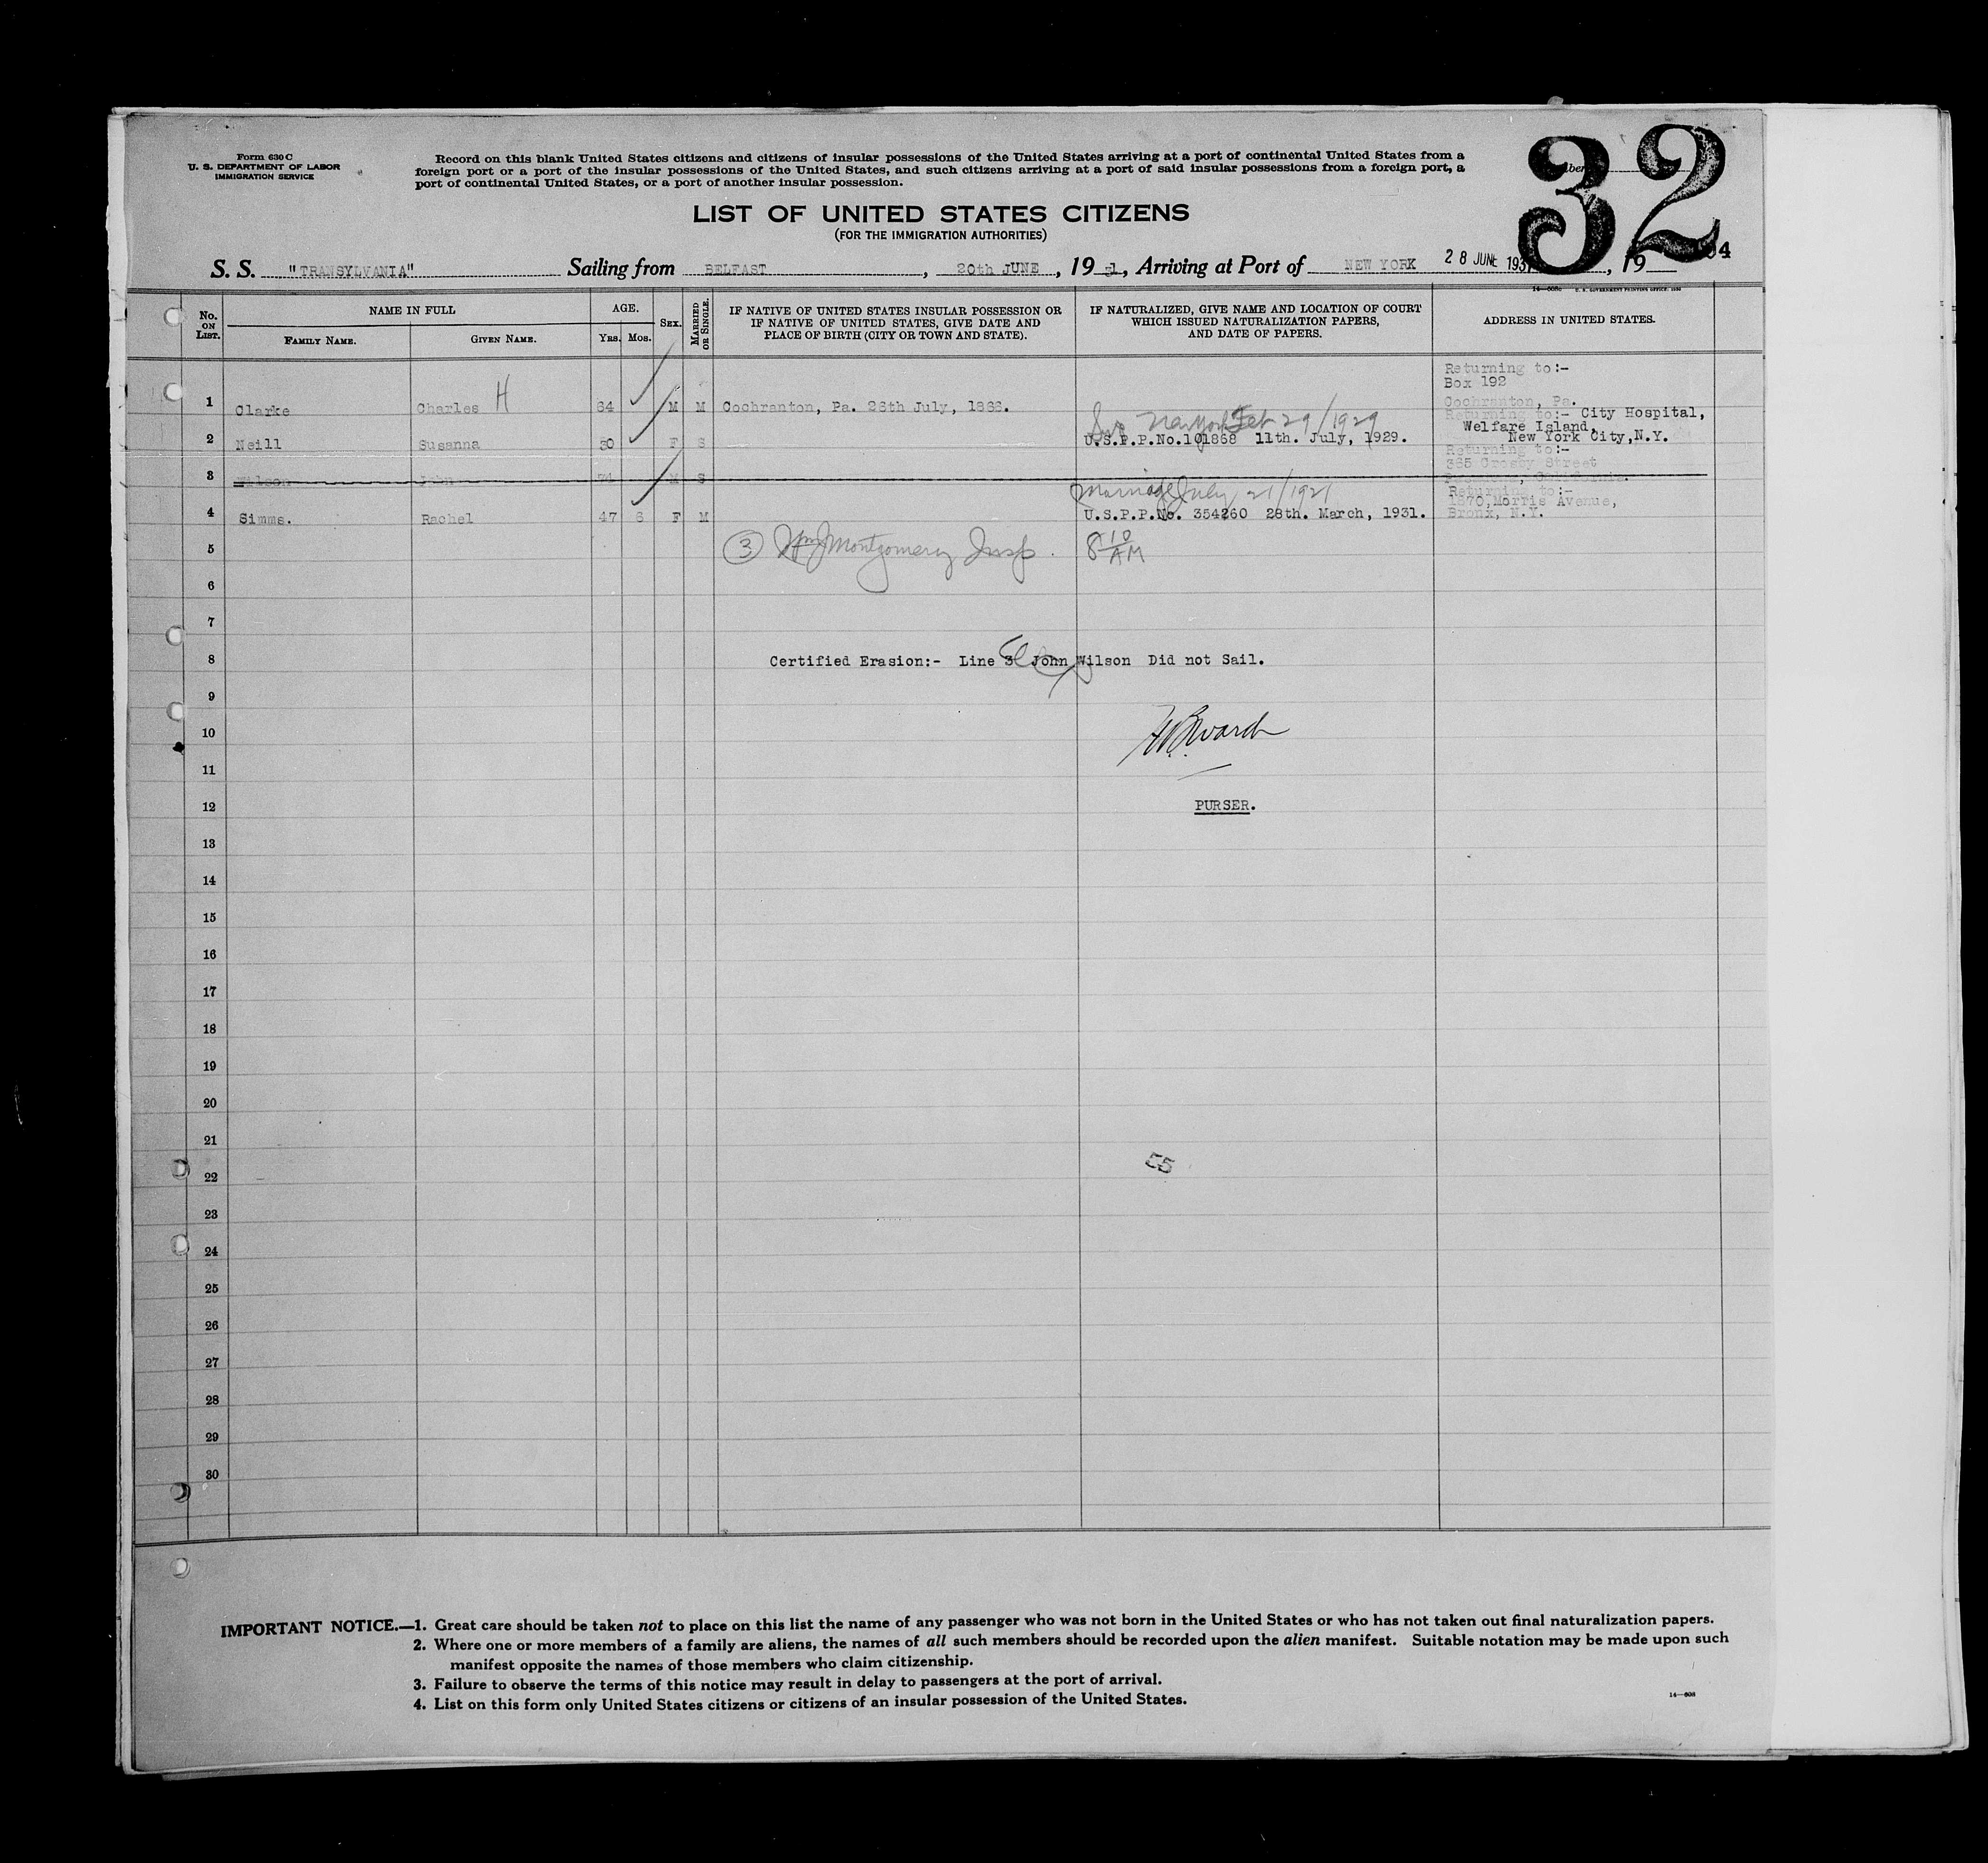 Form 630 C
U. S. DEPARTMENT OF LABOR
IMMIGRATION SERVICE
Record on this blank United States citizens and citizens of insular possessions of the United States arriving at a port of continental United States from a
foreign port or a port of the insular possessions of the United States, and such citizens arriving at a port of said insular possessions from a foreign port, a
port of continental United States, or a port of another insular possession.
32
LIST OF UNITED STATES CITIZENS
(FOR THE IMMIGRATION AUTHORITIES)
S. S. "TRANSYLVANIA" Sailing from BELFAST, 20th JUNE, 19 31, Arriving at Port of NEW YORK 28 JUNE 1931, 19
No. ON LIST. NAME IN FULL AGE. SEX. MARRIED OR SINGLE. IF NATIVE OF UNITED STATES INSULAR POSSESSION OR IF NATIVE OF UNITED STATES, GIVE DATE AND PLACE OF BIRTH (CITY OR TOWN AND STATE). IF NATURALIZED, GIVE NAME AND LOCATION OF COURT WHICH ISSUED NATURALIZATION PAPERS, AND DATE OF PAPERS. ADDRESS IN UNITED STATES.
FAMILY NAME. GIVEN NAME. YRS. MOS.
Returning to:-
Box 192
1 Clarke Charles H 64 M M Cochranton, Pa. 26th July, 1866. Cochranton, Pa.
New York Feb 29/1929 Returning to:- City Hospital,
Welfare Island,
2 Neill Susanna 30 F S U.S.P.P.No.101868 11th. July, 1929. New York City,N.Y.
Returning to:-
365 Crosby Street
3 Wilson John 74 M S California.
Marriage July 21/1921 Returning to:-
1870,Morris Avenue,
4 Simms. Rachel 47 8 F M U.S.P.P.No. 354260 28th. March, 1931. Bronx, N.Y.
5 3 Wm J Montgomery Insp. 8 10 AM
6
7
8 Certified Erasion:- Line 3 John Wilson Did not Sail.
9
10
11
12 PURSER.
13
14
15
16
17
18
19
20
21
22
23
24
25
26
27
28
29
30
IMPORTANT NOTICE.—1. Great care should be taken not to place on this list the name of any passenger who was not born in the United States or who has not taken out final naturalization papers.
2. Where one or more members of a family are aliens, the names of all such members should be recorded upon the alien manifest. Suitable notation may be made upon such
manifest opposite the names of those members who claim citizenship.
3. Failure to observe the terms of this notice may result in delay to passengers at the port of arrival.
4. List on this form only United States citizens or citizens of an insular possession of the United States.
14—608